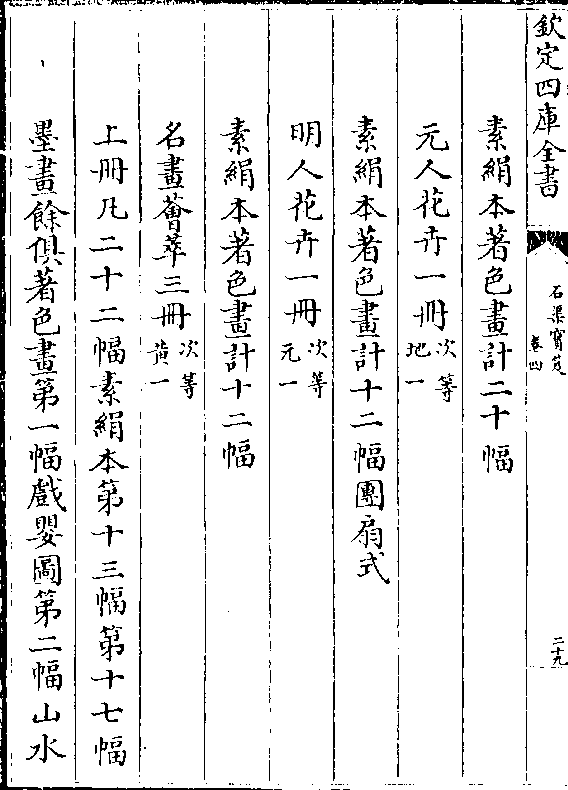 欽定四庫全書
石渠寶笈
卷四
二十九
素絹本著色畫計二十幅
元人花卉一冊次等地一
素絹本著色畫計十二幅團扇式
明人花卉一冊次等元一
素絹本著色畫計十二幅
名畫薈萃三冊次等黃一
上冊凡二十二幅素絹本第十三幅第十七幅
墨畫餘俱著色畫第一幅戲嬰圖第二幅山水